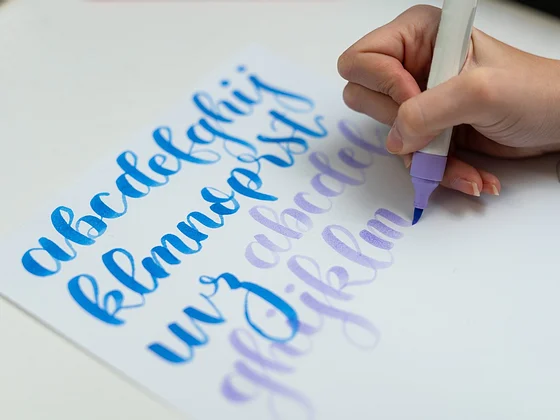 abcdefghij
klmnoprst
uvz
abcde
ghijklm